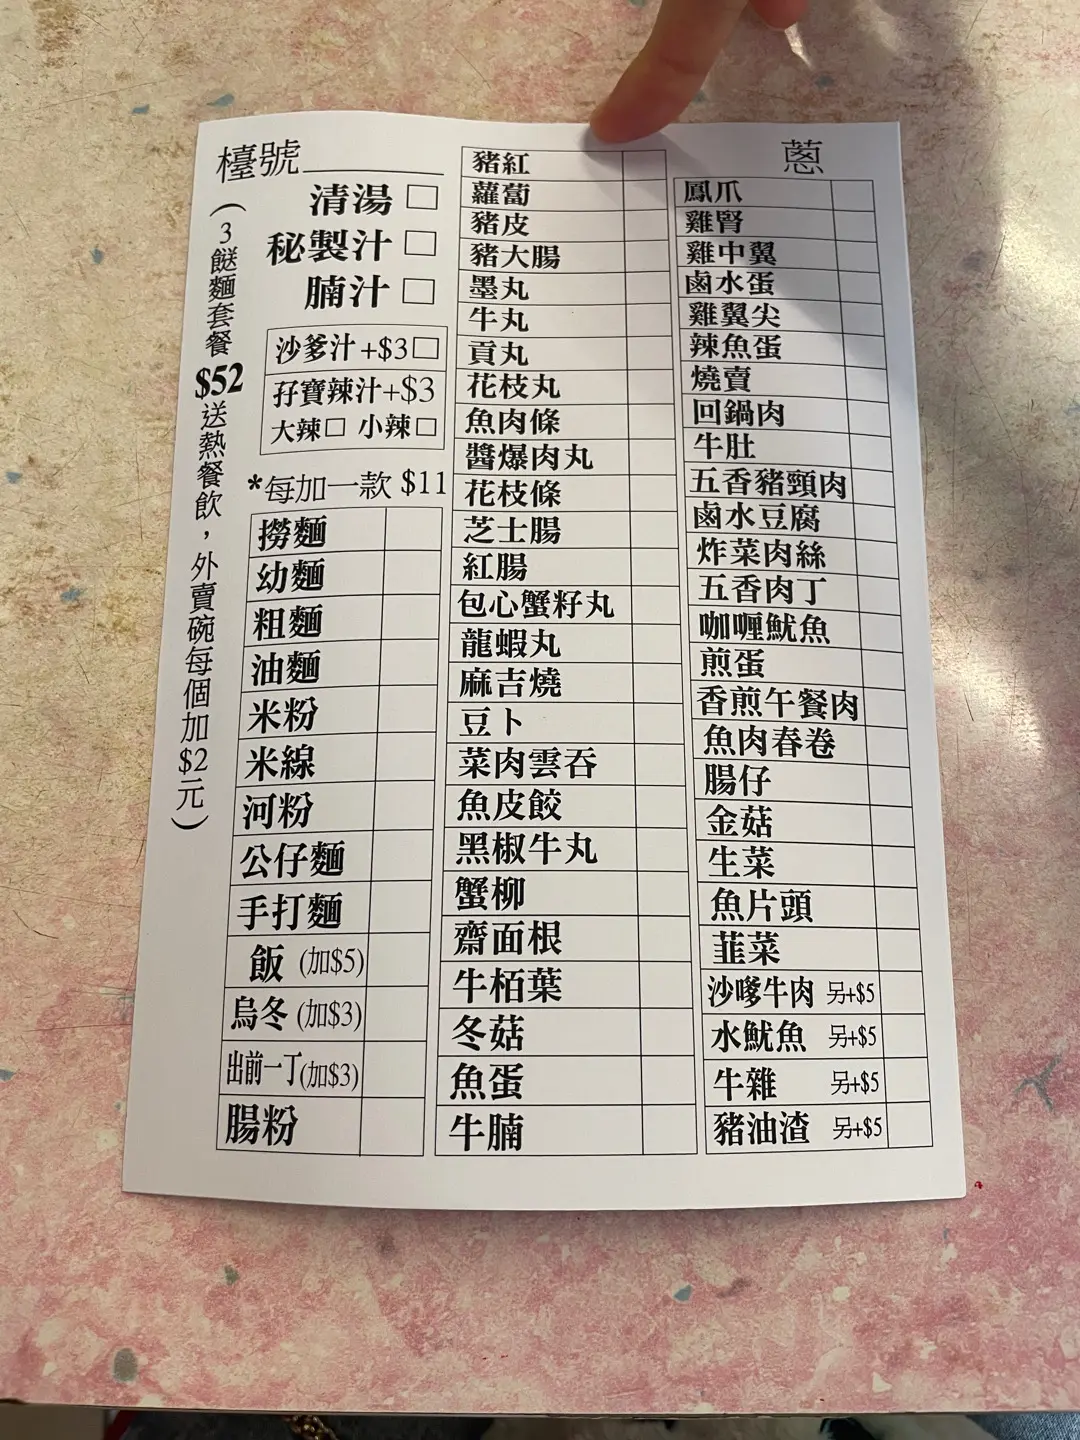 檯號
(3餸麵套餐$52送熱餐飲，外賣碗每個加$2元)
清湯
秘製汁
腩汁
沙爹汁+$3
孖寶辣汁+$3
大辣 小辣
*每加一款 $11
撈麵
幼麵
粗麵
油麵
米粉
米線
河粉
公仔麵
手打麵
飯 (加$5)
烏冬 (加$3)
出前一丁(加$3)
腸粉
豬紅
蘿蔔
豬皮
豬大腸
墨丸
牛丸
貢丸
花枝丸
魚肉條
醬爆肉丸
花枝條
芝士腸
紅腸
包心蟹籽丸
龍蝦丸
麻吉燒
豆卜
菜肉雲吞
魚皮餃
黑椒牛丸
蟹柳
齋面根
牛栢葉
冬菇
魚蛋
牛腩
蔥
鳳爪
雞腎
雞中翼
鹵水蛋
雞翼尖
辣魚蛋
燒賣
回鍋肉
牛肚
五香豬頸肉
鹵水豆腐
炸菜肉絲
五香肉丁
咖喱魷魚
煎蛋
香煎午餐肉
魚肉春卷
腸仔
金菇
生菜
魚片頭
韮菜
沙嗲牛肉 另+$5
水魷魚 另+$5
牛雜 另+$5
豬油渣 另+$5